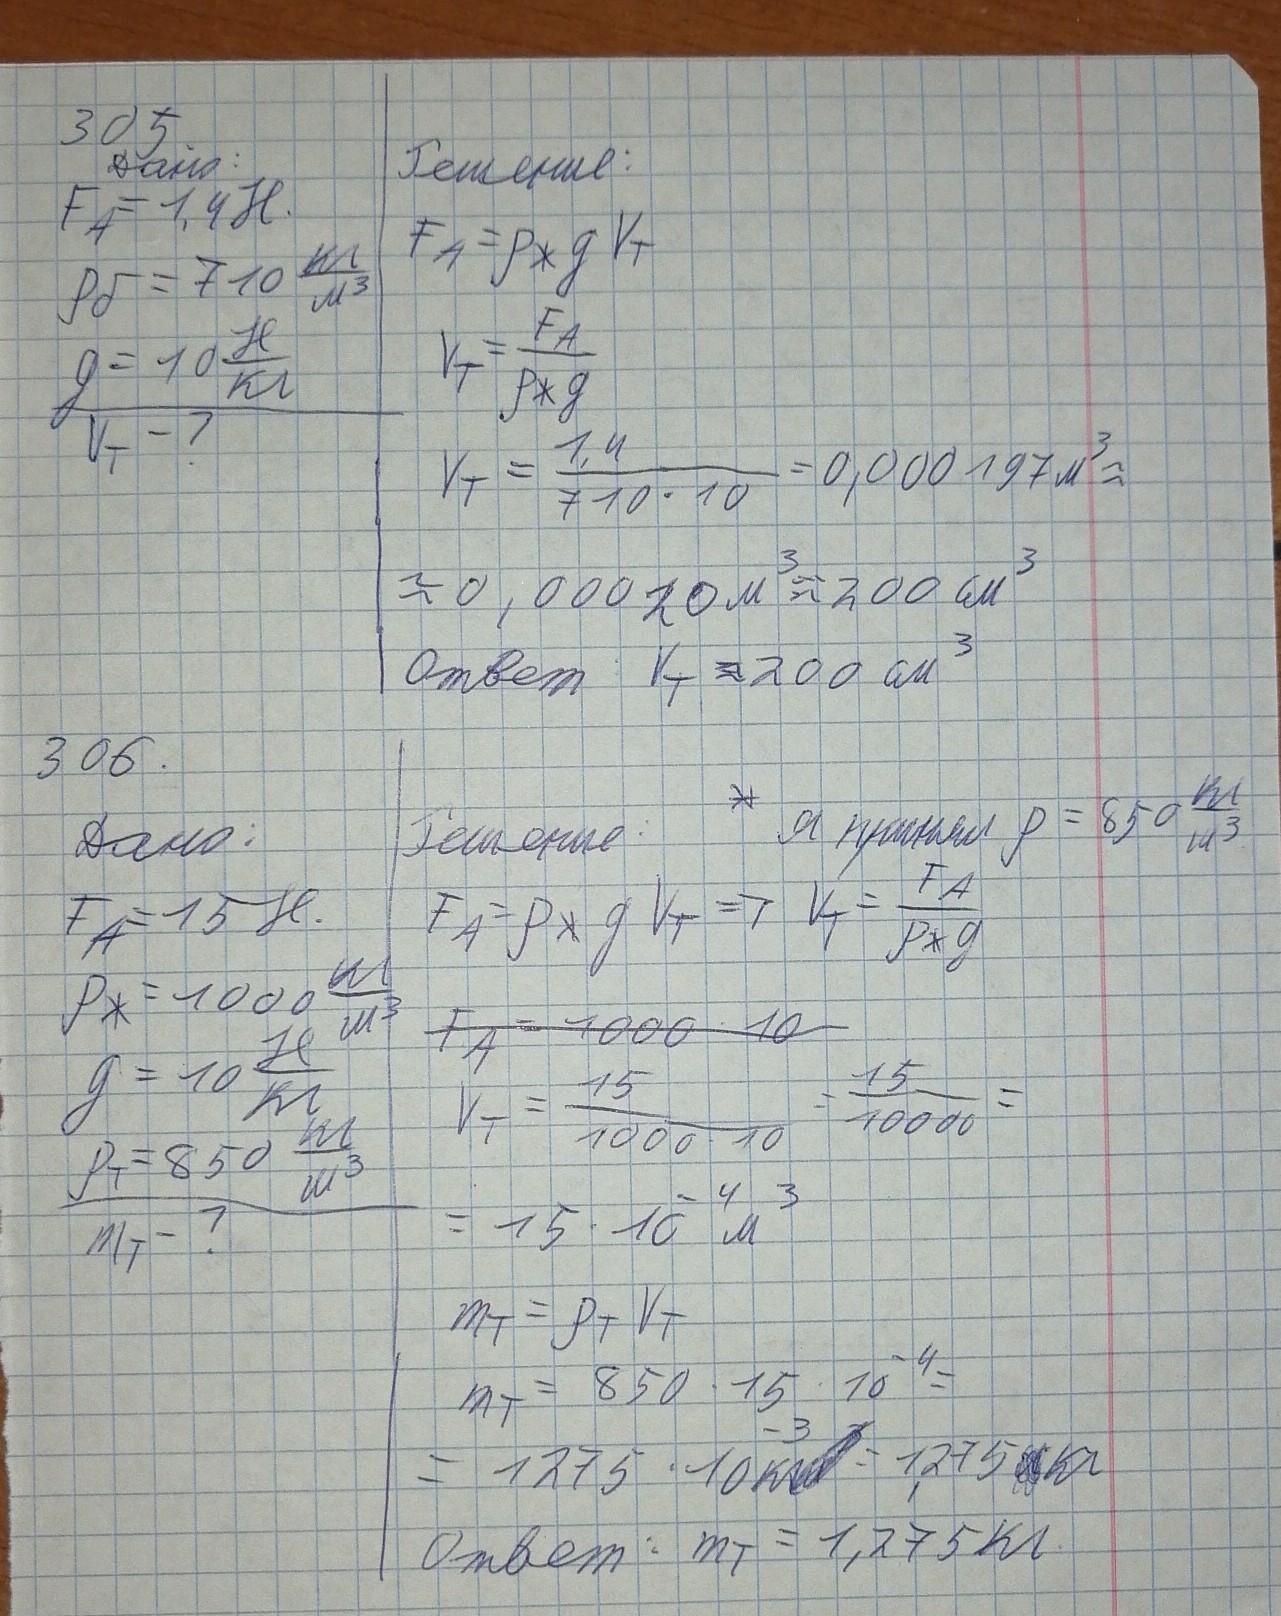 305
Дано:
F_A = 1,4 Н.
ρб = 710 кг/м³
g = 10 Н/кг
V_T - ?
Решение:
F_A = ρж g V_T
V_T = F_A/ρж g
V_T = 1,4/710 · 10 = 0,000197 м³ ≈
≈ 0,00020 м³ ≈ 200 см³
Ответ: V_T ≈ 200 см³
306.
Дано:
F_A = 15 Н.
ρж = 1000 кг/м³
g = 10 Н/кг
ρ_T = 850 кг/м³
m_T - ?
* Я принял ρ = 850 кг/м³
Решение:
F_A = ρж g V_T => V_T = F_A/ρж g
F_A = 1000 · 10
V_T = 15/1000 · 10 = 15/10000 =
= 15 · 10⁻⁴ м³
m_T = ρ_T V_T
m_T = 850 · 15 · 10⁻⁴ =
= 1275 · 10⁻³ кг = 1,275 кг
Ответ: m_T = 1,275 кг.